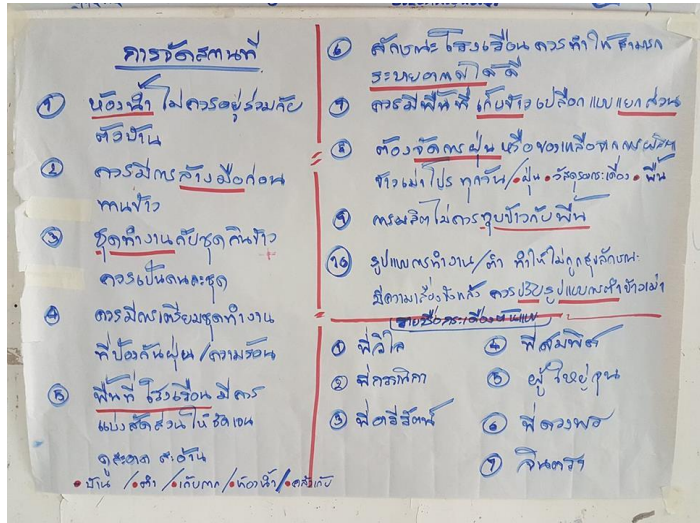 การจัดสถานที่
① ห้องน้ำ ไม่ควรอยู่ร่วมกับ
ตัวบ้าน
② ควรมีการล้างมือก่อน
ทานข้าว
③ ชุดทำงานกับชุดกินข้าว
ควรเป็นคนละชุด
④ ควรมีการเตรียมชุดทำงาน
ที่ป้องกันฝุ่น/ความร้อน
⑤ พื้นที่ โรงเรือน มีการ
แบ่งสัดส่วนให้ชัดเจน
ดูสะอาด สะอ้าน
• บ้าน /• ตำ /• เก็บกาก /• ห้องน้ำ /• คลังเก็บ
⑥ ลักษณะโรงเรือน ควรทำให้สามารถ
ระบายอากาศได้ดี
⑦ ควรมีพื้นที่เก็บข้าวเปลือก แบบแยกส่วน
⑧ ต้องจัดการฝุ่น หรือของเหลือจากการผลิต
ข้าวเม่าโปร ทุกวัน /• ฝุ่น • วัสดุรองกระเดื่อง • พื้น
⑨ การผลิตไม่ควรคุยข้าวกับพื้น
⑩ รูปแบบการทำงาน/ตำ ทำให้ไม่ถูกสุขลักษณะ
มีความเสี่ยง ควรปรับรูปแบบการตำข้าวเม่า
รายชื่อกระเดื่องต้นแบบ
① พี่วิไล
② พี่กรรณิกา
③ พี่ศรีรัตน์
④ พี่สมพิศ
⑤ ผู้ใหญ่
⑥ พี่ดวงพร
⑦ จินตรา